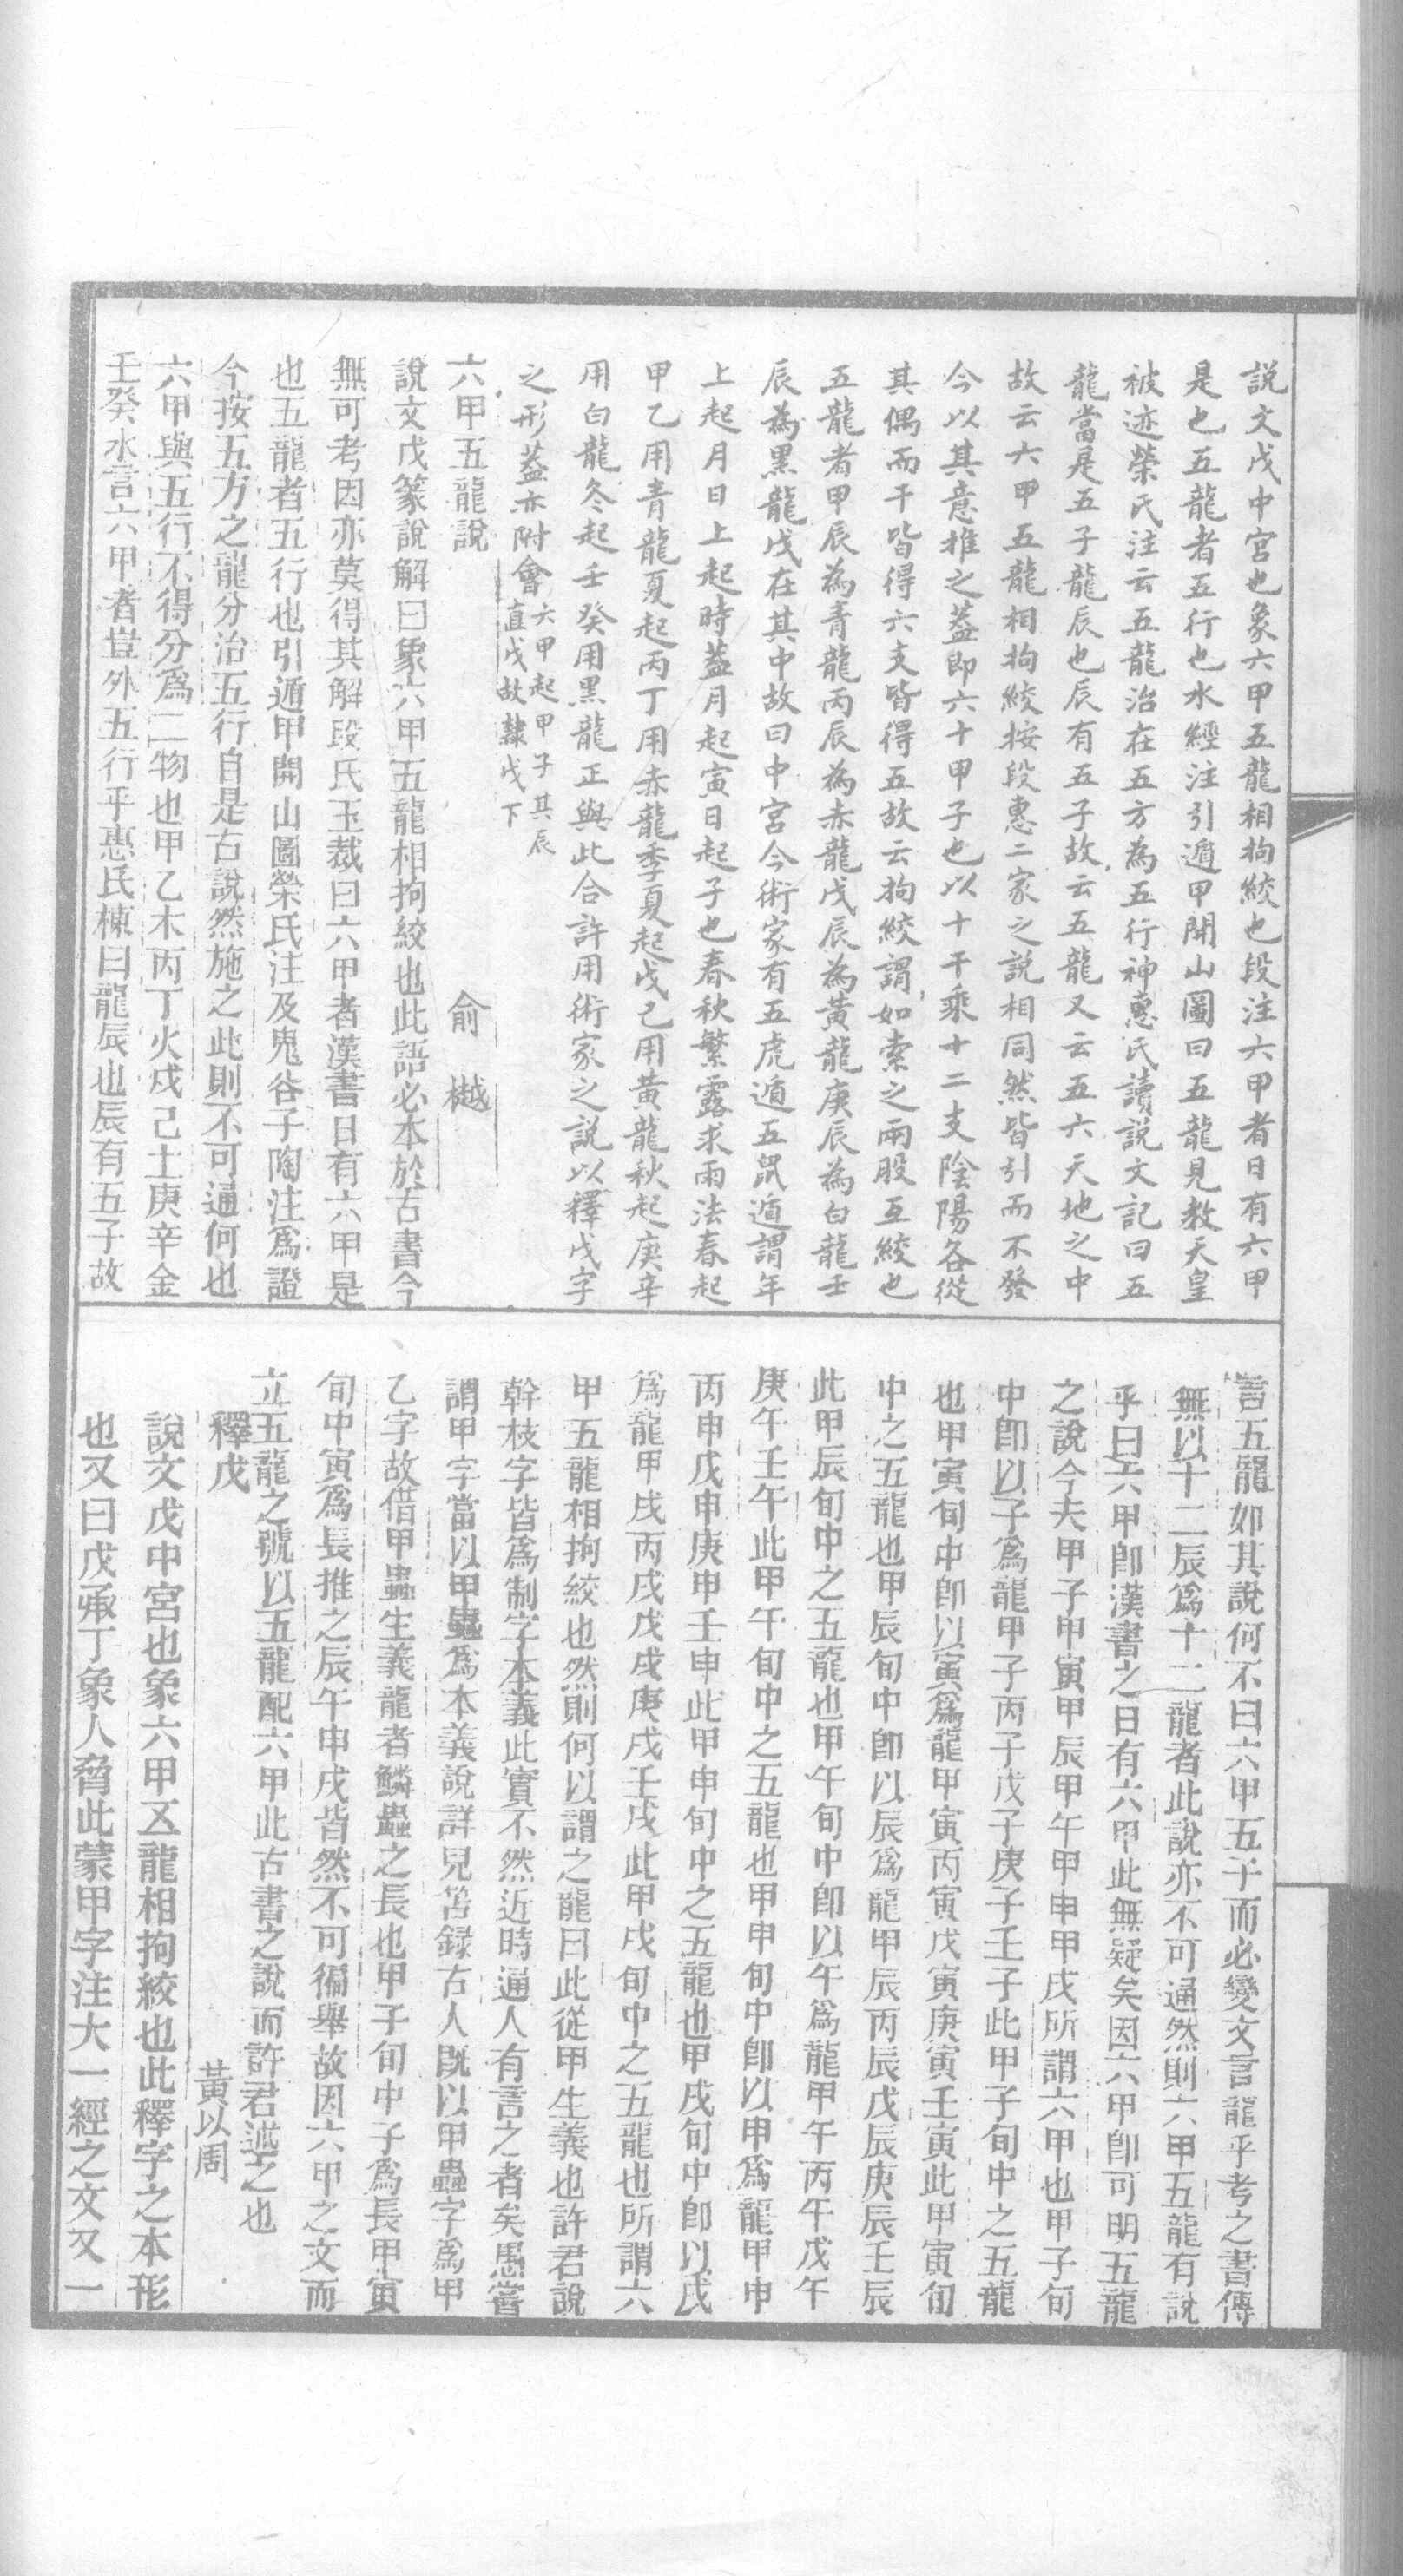 説文戊中宮也象六甲五龍相拘絞也段注六甲者日有六甲
是也五龍者五行也水經注引遁甲開山圖曰五龍見教天皇
被迹榮氏注云五龍治在五方為五行神惠氏讀説文記曰五
龍當是五子龍辰也辰有五子故云五龍又云五六天地之中
故云六甲五龍相拘絞按段惠二家之説相同然皆引而不發
今以其意推之蓋即六十甲子也以十干乘十二支陰陽各從
其偶而干皆得六支皆得五故云拘絞謂如索之兩股互絞也
五龍者甲辰為青龍丙辰為赤龍戊辰為黃龍庚辰為白龍壬
辰為黑龍戊在其中故曰中宮今術家有五虎遁五鼠遁謂年
上起月日上起時蓋月起寅日起子也春秋繁露求雨法春起
甲乙用青龍夏起丙丁用赤龍季夏起戊己用黃龍秋起庚辛
用白龍冬起壬癸用黑龍正與此合許用術家之説以釋戊字
之形蓋亦附會六甲起甲子其辰
直戊故隸戊下
六甲五龍說　俞樾
說文戊篆說解曰象六甲五龍相拘絞也此語必本於古書今
無可考因亦莫得其解段氏玉裁曰六甲者漢書日有六甲是
也五龍者五行也引遁甲開山圖榮氏注及鬼谷子陶注爲證
今按五方之龍分治五行自是古說然施之此則不可通何也
六甲與五行不得分爲二物也甲乙木丙丁火戊己土庚辛金
壬癸水言六甲者豈外五行乎惠氏棟曰龍辰也辰有五子故
言五龍如其說何不曰六甲五子而必變文言龍乎考之書傳
無以十二辰爲十二龍者此說亦不可通然則六甲五龍有說
乎曰六甲卽漢書之日有六甲此無疑矣因六甲卽可明五龍
之說今夫甲子甲寅甲辰甲午甲申甲戌所謂六甲也甲子旬
中卽以子爲龍甲子丙子戊子庚子壬子此甲子旬中之五龍
也甲寅旬中卽以寅爲龍甲寅丙寅戊寅庚寅壬寅此甲寅旬
中之五龍也甲辰旬中卽以辰爲龍甲辰丙辰戊辰庚辰壬辰
此甲辰旬中之五龍也甲午旬中卽以午爲龍甲午丙午戊午
庚午壬午此甲午旬中之五龍也甲申旬中卽以申爲龍甲申
丙申戊申庚申壬申此甲申旬中之五龍也甲戌旬中卽以戌
爲龍甲戌丙戌戊戌庚戌壬戌此甲戌旬中之五龍也所謂六
甲五龍相拘絞也然則何以謂之龍曰此從甲生義也許君說
幹枝字皆爲制字本義此實不然近時通人有言之者矣愚嘗
謂甲字當以甲蟲爲本義說詳兒笘錄古人旣以甲蟲字爲甲
乙字故借甲蟲生義龍者鱗蟲之長也甲子旬中子爲長甲寅
旬中寅爲長推之辰午申戌皆然不可徧舉故因六甲之文而
立五龍之號以五龍配六甲此古書之說而許君述之也
釋戊　黃以周
說文戊中宮也象六甲五龍相拘絞也此釋字之本形
也又曰戊承丁象人脅此蒙甲字注大一經之文又一